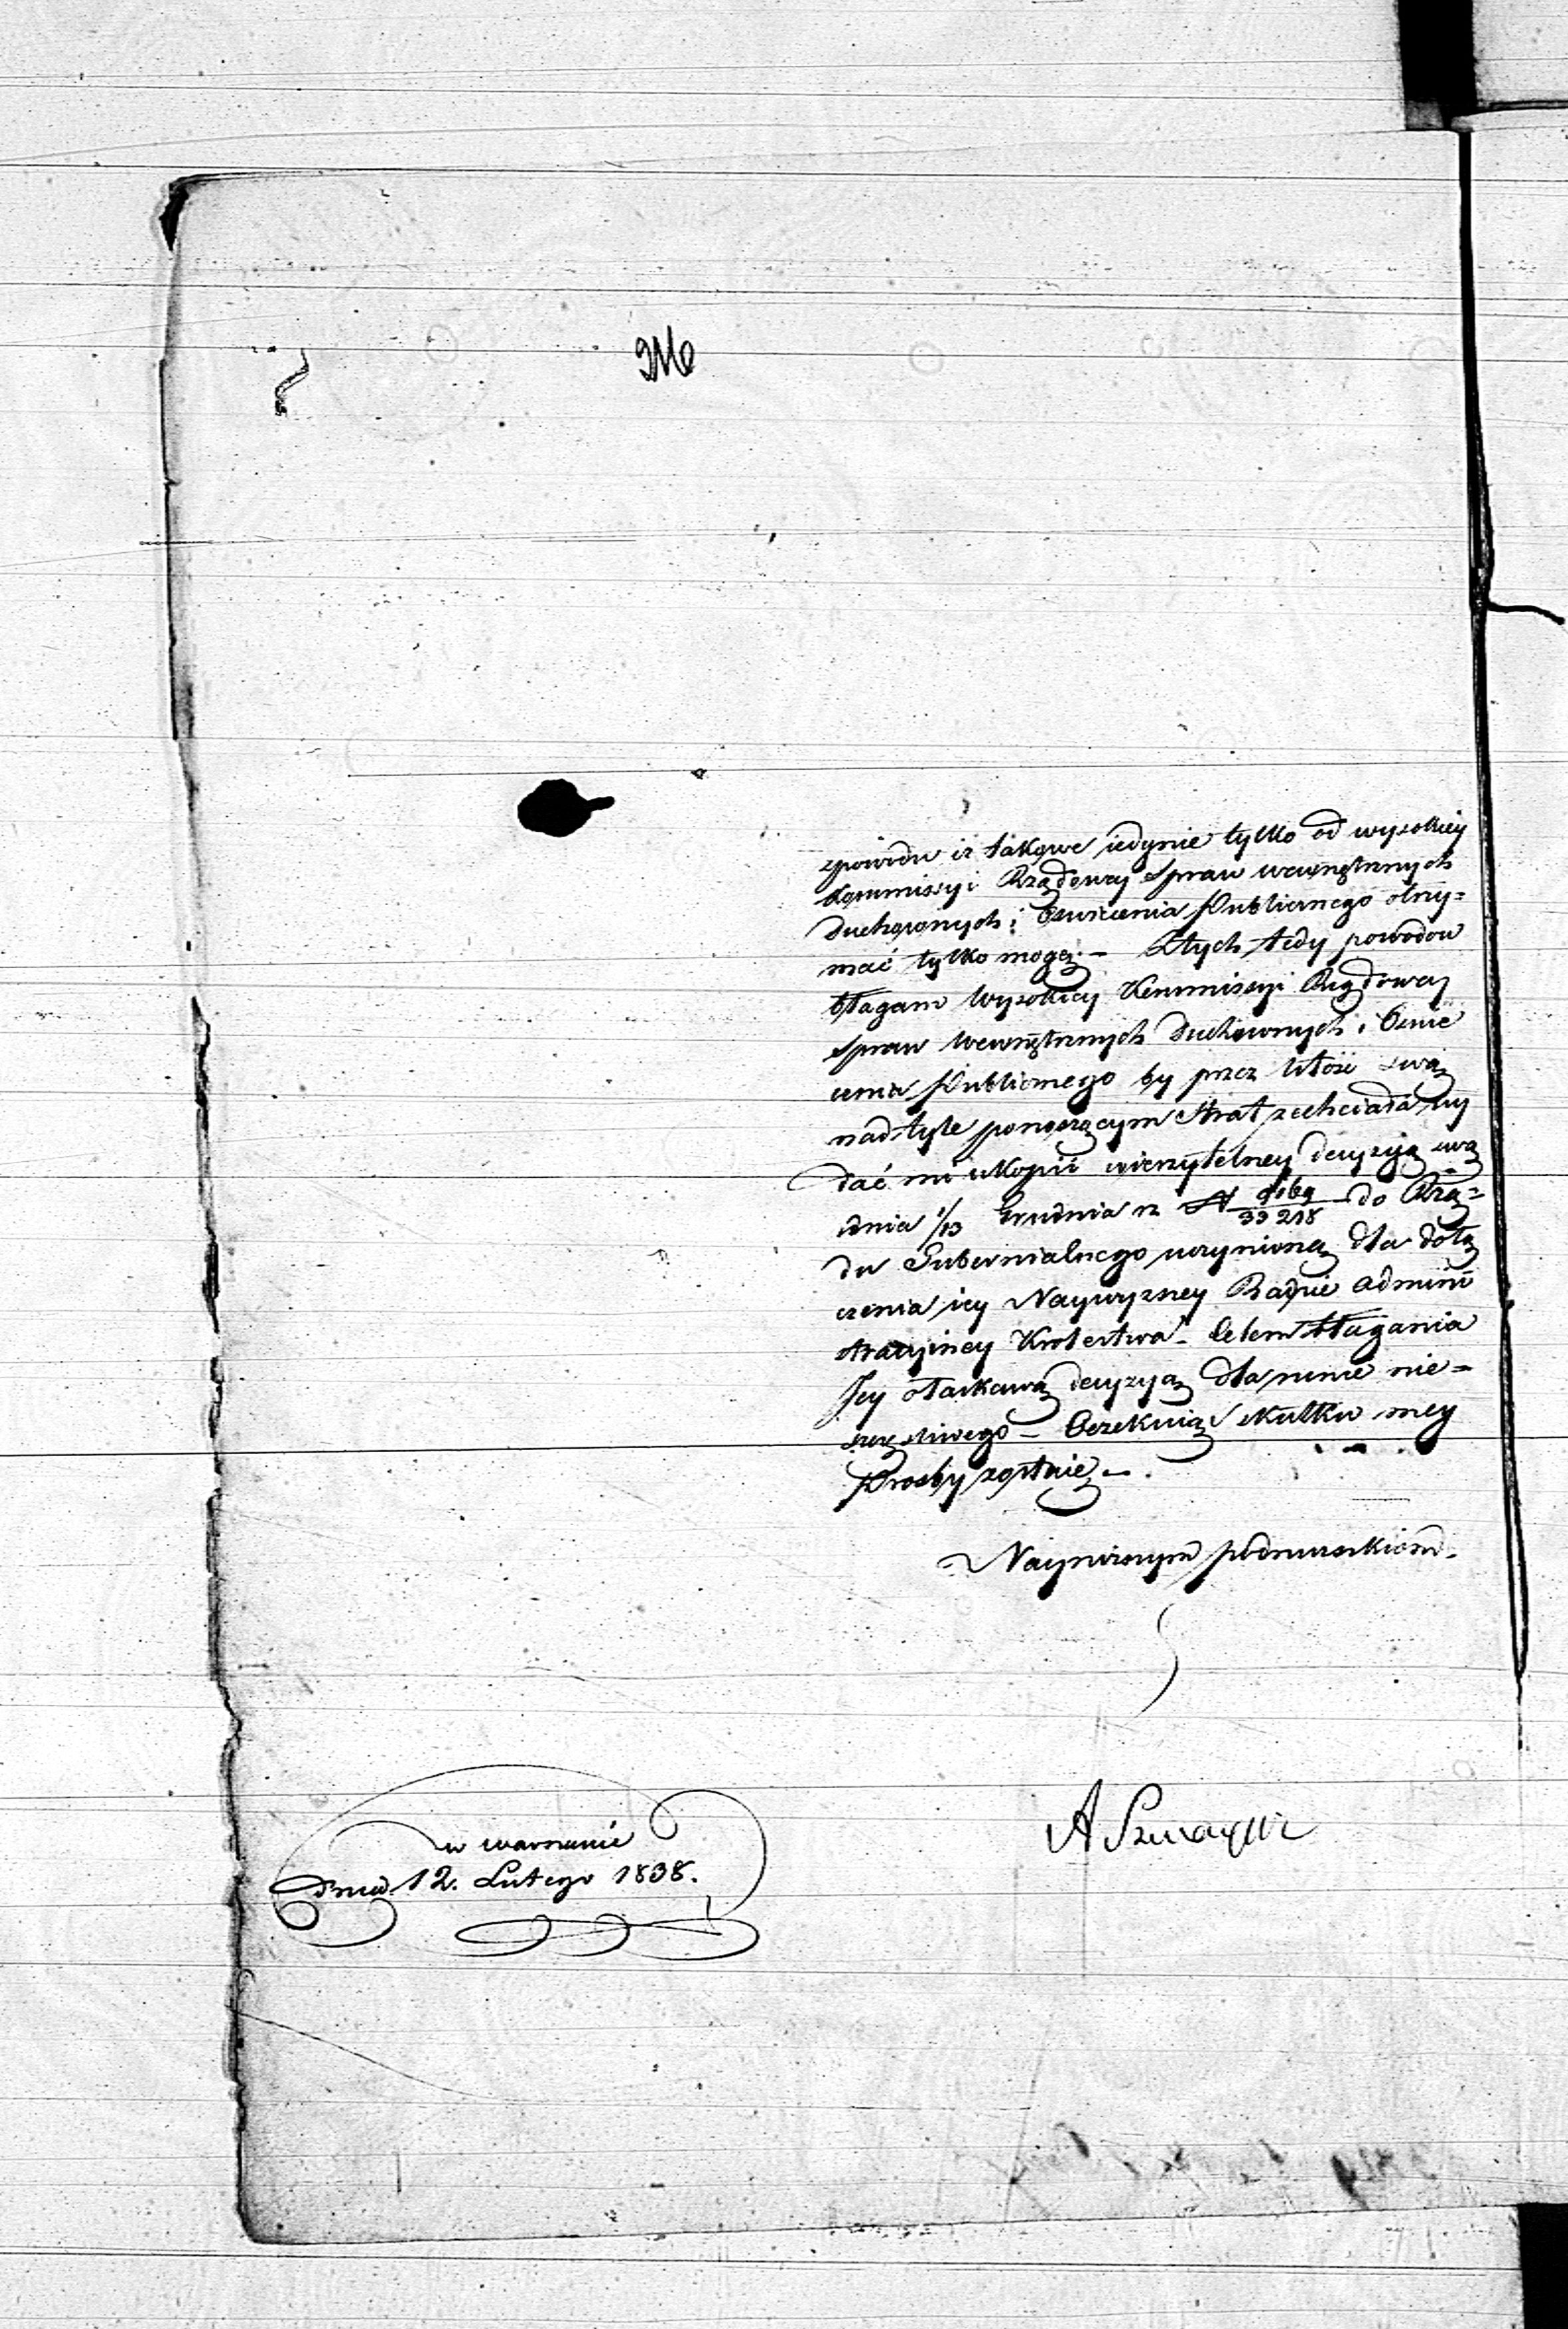 zpowodu iż takowe iedynie tylko od wysokiey
Kommissyi Rządowey Spraw wewnętrznych
Duchownych i Oswiecenia Publicznego otrzy=
mać tylko mogę. — Ztych tedy powodow
błagam Wysokiey Kommissyi Rządowey
Spraw Wewnętrznych Duchownych i Oswie
cenia Publicznego by przez litość swą
nad tyle ponoszącym strat zechciała wy
dać mi wkopii wierzytelney decyzyą swą
zdnia 1/13 Grudnia rz N 33218 do Rzą=
du Gubernialnego uczynioną dla dołą
czenia iey Naywyzszey Radzie Admini
stracyiney Krolestwa — Celem błagania
Jey o łaskawą decyzyą dla mnie nie=
szczęsliwego — Oczekuiąc skutku mey
Prosby zostaię —.
Naynizszym podnuszkiem.
A Szwaykli
w warszawie
Dnia 12. Lutego 1838.